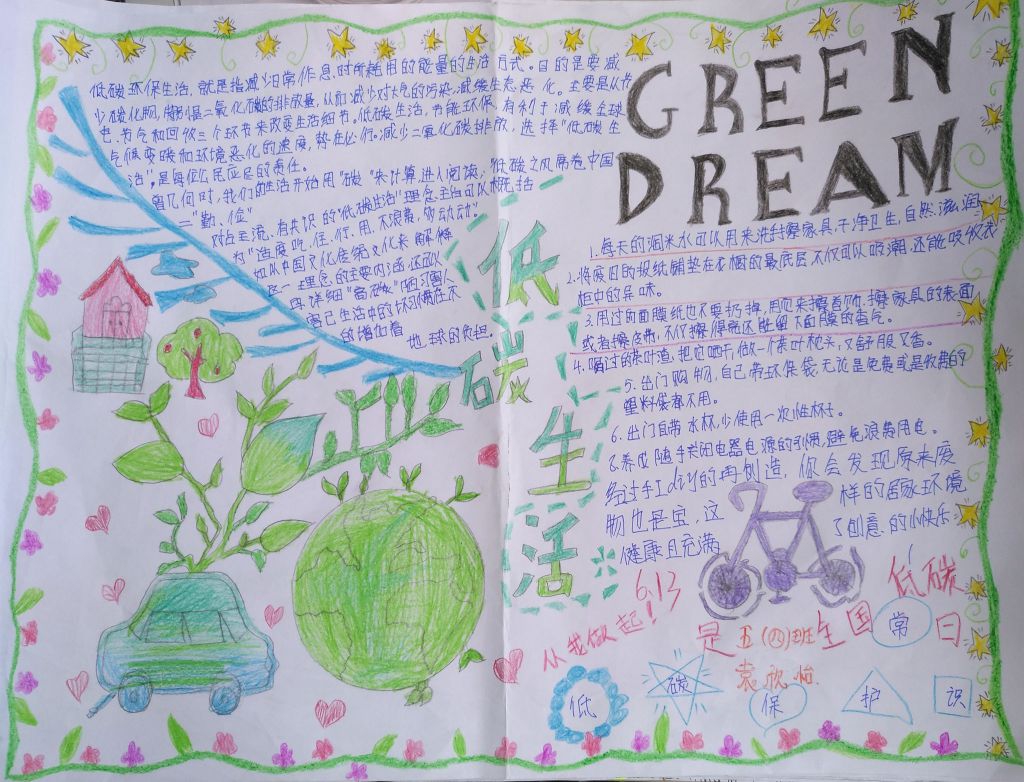 GREEN
DREAM
低碳环保生活,就是指减少日常作息时所耗用的能量的生活方式。目的是要减
少碳化物,特别是二氧化碳的排放量,从而减少对大气的污染,减缓生态恶化。主要是从节
电、节气和回收三个环节来改变生活细节。低碳生活,节能环保,有利于减缓全球
气候变暖和环境恶化的速度,势在必行。减少二氧化碳排放,选择“低碳生
活”,是每位民应尽的责任。
曾几何时,我们的生活开始用“碳”来计算进入阅读。“低碳”之风席卷中国
一“勤、俭”
对占主流、有共识的“低碳生活”理念主的可以概括
为“适度吃、住、行、用,不浪费,多动动”。
如从中国文化传统文化来解释
这一理念的主要内涵还
再详细“高碳”陋习
害己生活中的坏习惯在不
的增加着
地球的负担.
低
碳
生
活
1.每天的淘米水可以用来洗手擦家具,干净卫生,自然滋润
2.将废旧的报纸铺垫在衣橱的最底层不仅可以吸潮,还能吸收衣
柜中的异味。
3.用过的面膜纸也不要扔掉,用它来擦首饰,擦家具的表面
或者擦皮带,不仅擦得亮还能留下面膜的香气。
4.喝过的茶叶渣,把它晒干,做一个茶叶枕头,又舒服又香。
5.出门购物,自己带环保袋,无论是免费或是收费的
塑料袋都不用。
6.出门自带水杯,少使用一次性杯子。
6.养成随手关闭电器电源的习惯,避免浪费用电。
经过手工diy的再创造,你会发现原来废
物也是宝,这样的居家环境
健康且充满了创意的小快乐。
从我做起!
6.13
是全国低碳日.
五(四)班
袁欣怡.
低
碳
保
护
常
识